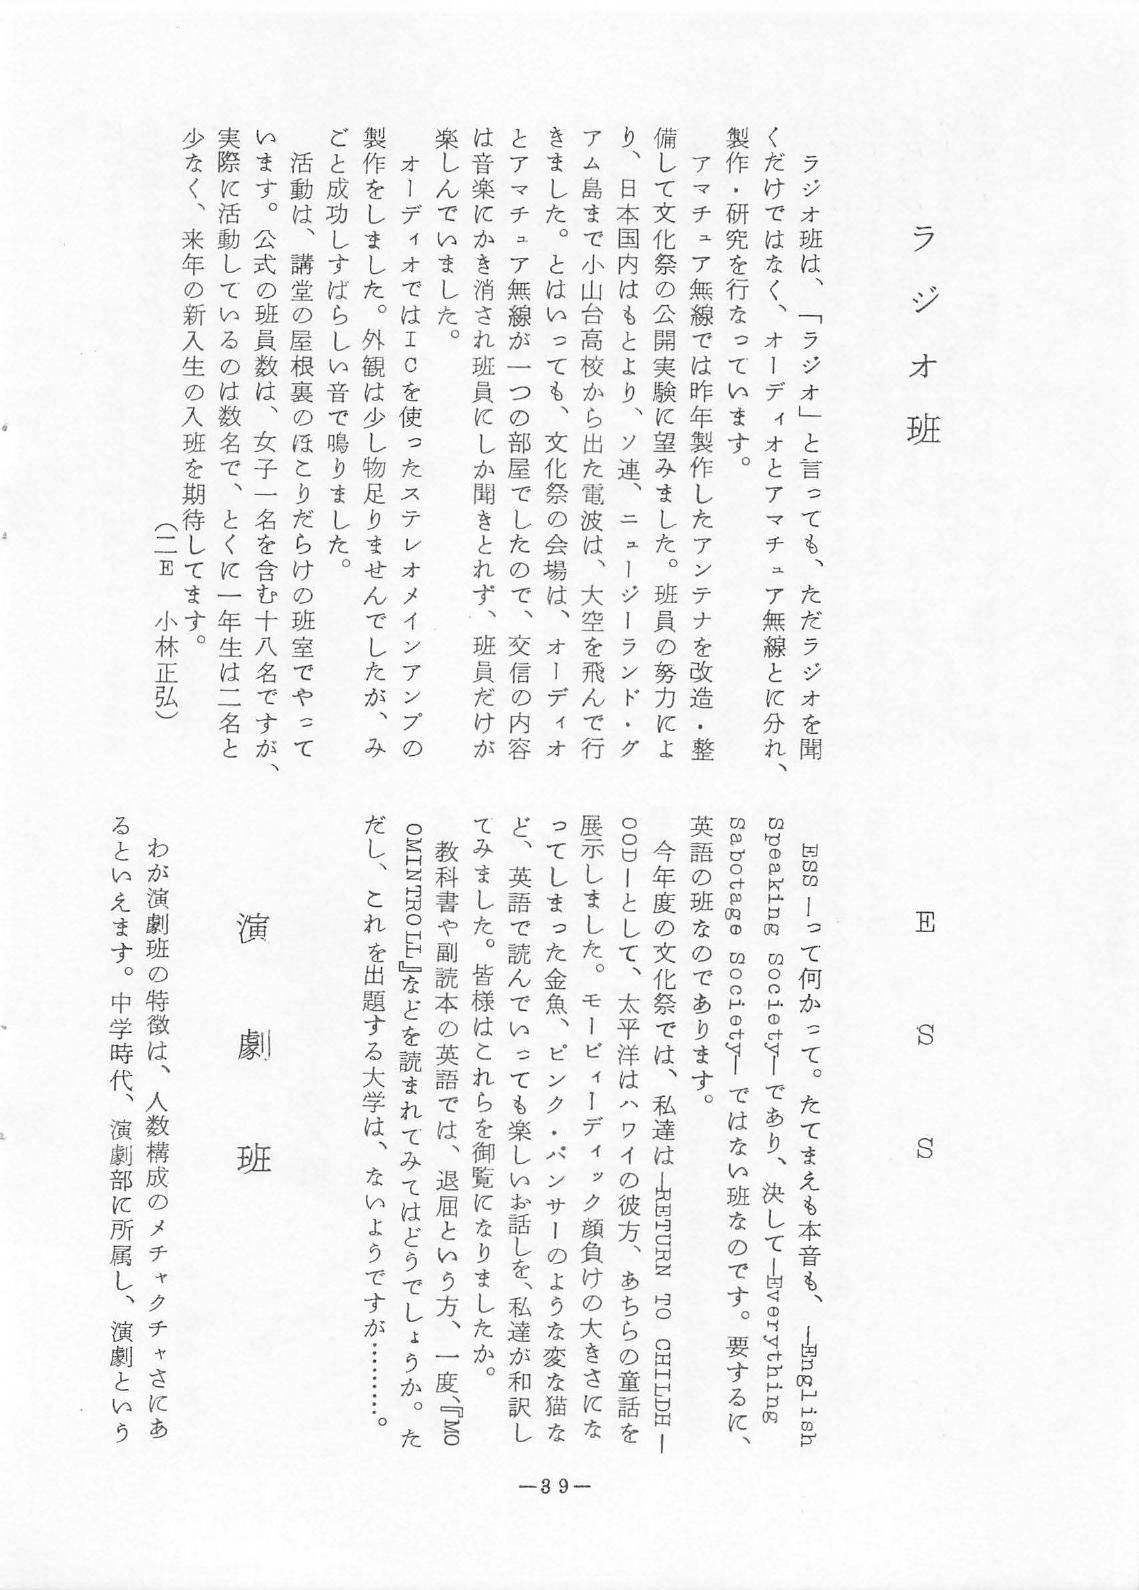 ラジオ班
　ラジオ班は、「ラジオ」と言っても、ただラジオを聞
くだけではなく、オーディオとアマチュア無線とに分れ、
製作・研究を行なっています。
　アマチュア無線では昨年製作したアンテナを改造・整
備して文化祭の公開実験に望みました。班員の努力によ
り、日本国内はもとより、ソ連、ニュージーランド・グ
アム島まで小山台高校から出た電波は、大空を飛んで行
きました。とはいっても、文化祭の会場は、オーディオ
とアマチュア無線が一つの部屋でしたので、交信の内容
は音楽にかき消され班員にしか聞きとれず、班員だけが
楽しんでいました。
　オーディオではＩＣを使ったステレオメインアンプの
製作をしました。外観は少し物足りませんでしたが、み
ごと成功しすばらしい音で鳴りました。
　活動は、講堂の屋根裏のほこりだらけの班室でやって
います。公式の班員数は、女子一名を含む十八名ですが、
実際に活動しているのは数名で、とくに一年生は二名と
少なく、来年の新入生の入班を期待してます。
（二Ｅ　小林正弘）
ＥＳＳ
　ESS―って何かって。たてまえも本音も、―English
Speaking Society―であり、決して―Everything
Sabotage Society―ではない班なのです。要するに、
英語の班なのであります。
　今年度の文化祭では、私達は―RETURN TO CHILDH―
OOD―として、太平洋はハワイの彼方、あちらの童話を
展示しました。モービィーディック顔負けの大きさにな
ってしまった金魚、ピンク・パンサーのような変な猫な
ど、英語で読んでいっても楽しいお話しを、私達が和訳し
てみました。皆様はこれらを御覧になりましたか。
　教科書や副読本の英語では、退屈という方、一度、『MO
OMINTROLL』などを読まれてみてはどうでしょうか。た
だし、これを出題する大学は、ないようですが………。
演劇班
　わが演劇班の特徴は、人数構成のメチャクチャさにあ
るといえます。中学時代、演劇部に所属し、演劇という
―39―